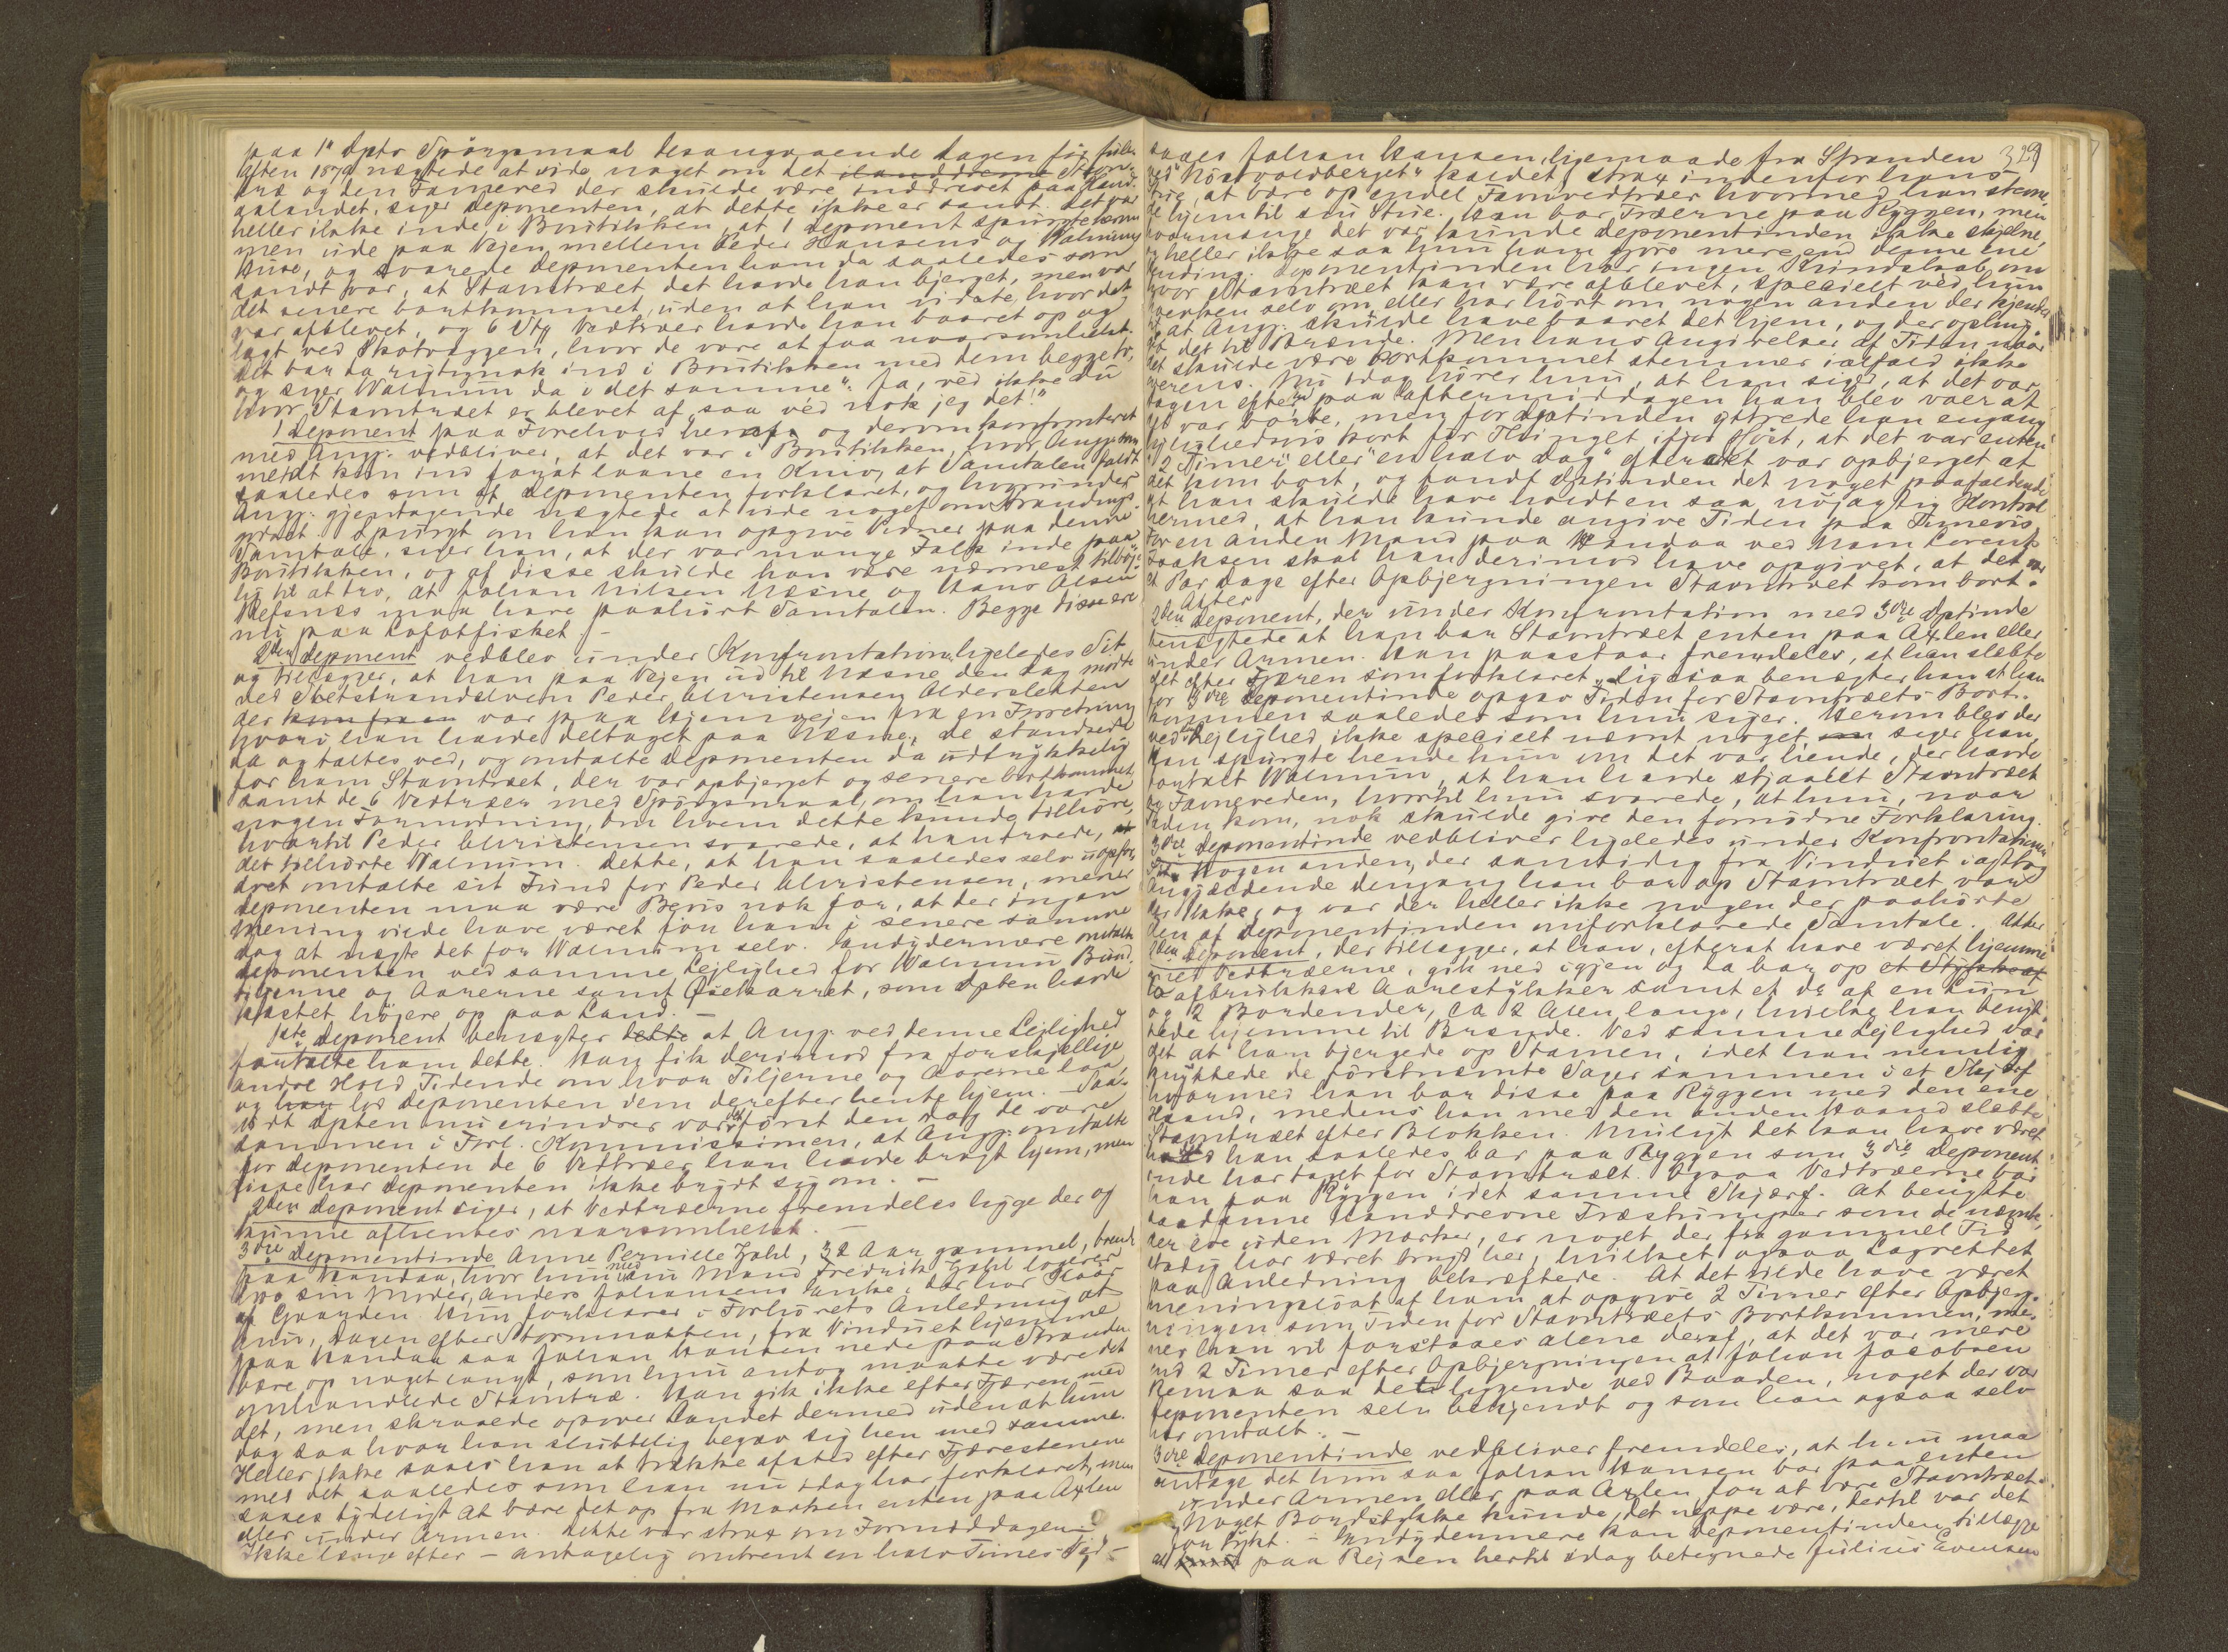 paa 1ste Dpts Spörgsmaal desangaaende Dagen før Jule-
aften 1879 nægtede at vide noget om det ilanddrevne Stavn-
træ og den Favneved der skulde være inddrevet paa Hand-
aalandet, siger Deponenten, at dette ikke er sandt. Det var
heller ikke inde i Boutikken, at 1 Deponent spurgte derom
men ude paa Vejen mellem Peder Hansens og Walnums
Huse, og svarede Deponenten ham da saaledes som
sandt var, at Stavntræet det havde han bjerget, men var
det senere bortkommet, uden at han vidste, hvor det
var afblevet, og 6 Stk Vedtræer havde han baaret op og
lagt ved Skotvæggen, hvor de vare at faa naarsomhelst.
Det bar da rigtignok ind i Boutikken med dem begge to,
og siger Walnum da i det samme: "Ja, véd ikke du
hvor Stavntræet er blevet af, saa véd nok jeg det!"
1 Deponent paa Forehold heraf og derom konfronteret
med Angj. vedbliver, at det var i Boutikken, hvor Angj. som
meldt kom ind for at laane en Kniv, at Samtalen faldt
saaledes som af Deponenten forklaret, og hvorunder
Angj. gjentagende nægtede at vide noget om Strandings-
godset. Spurgt om han kan opgive Vidner paa denne
Samtale, siger han, at der var mange Folk inde paa
Boutikken, og af disse skulde han være nærmest tilböje-
lig til at tro, at Johan Nilsen Næsne og Hans Olsen
Refsnes maa have paahört Samtalen. Begge disse ere
nu paa Lofotfisket. –
2den Deponent vedblev under Konfrontation ligeledes Sit
og tillægger, at han paa Vejen ud til Næsne den Dag mödte
ved Sletstrandelven Peder Christensen Alderslekten
der kom fra en var paa Hjemvejen fra en Forretning
hvori han havde deltaget paa Næsne, de standsede
da og taltes ved, og omtalte Deponenten da udtrykkelig
for ham Stavntræet, der var opbjerget og senere bortkommet,
samt de 6 Vedtræer med Spörgsmaal, om han havde
nogen Formodning, om hvem dette kunde tilhöre,
hvortil Peder Christensen svarede, at han troede, at
det tilhørte Walnum. Dette, at han saaledes selv uopfor-
dret omtalte sit Fund for Peder Christensen, mener
Deponenten maa være Bevis nok for, at der ingen
Mening vilde have været for ham i senere samme
Dag at nægte det for Walnum selv. Endydermere omtalte
Deponenten ved samme Lejlighed for Walnum Bund-
tiljerne og Aarerne samt Öiekarret, som Dpten havde
kastet höjere op paa Land. –
1ste Deponent benægter dette at Angj. ved denne Lejlighed
fortalte ham dette. Han fik derimod fra forskjellige
andre Hold Tidende om hvor Tiljerne og Aarerne laa,
og han lod Deponenten dem derefter hente hjem. – Saa-
vidt Dpten nu erindrer var det först den Dag de vare
sammen i Forl. Kommissionen, at Angj. omtalte
for Deponenten de 6 Vedtræer han havde bragt hjem, men
disse har Deponenten ikke brydt sig om. –
2den Deponent siger, at Vedtræerne fremdeles ligge der og
kunne afhentes naarsomhelst. –
3die Deponentinde Anne Pernille Zahl, 32 Aar gammel, boende
paa Handaa, hvor hun med sin Mand Fredrik Zahl logerer
hos sin Moder, Anders Johansens Enke, der har Kaar
af Gaarden. Hun forklarer i Forhörets Anledning at
hun, Dagen efter Stormnatten, fra Vinduet hjemme
paa Handaa saa Johan Hansen nede paa Stranden
bære op noget langt, som hun antog maatte være det
omhandlede Stavntræ. Han gik ikke efter Fjæren med
det, men skraaede opover Landet dermed uden at hun
dog saa hvor han sluttelig begav sig hen med samme.
Heller ikke saaes han at trække afsted efter Fjærestenene
med det saaledes som han nu idag har forklaret, men
saaes tydeligt at bære det op fra Marken enten paa Axlen
eller under Armen. Dette var strax om Formiddagen. –
Ikke længe efter – antagelig omtrent en halv Times Tid –
329
saaes Johan Hansen ligemaade fra Stranden
ved "Nöstvoldberget" kaldet, strax indenfor hans
Stue, at bære op endel Favnvedtræer hvormed han stevne-
de hjem til sin Stue. Han bar Træerne paa Ryggen, men
hvormange det var kunde Deponentinden ikke skjelne,
og heller ikke saa hun ham gjöre mere end denne ene
Vending. Deponentinden har ingen Kundskab om
hvor Stavntræet kan være afblevet, specielt véd hun
hverken selv om eller har hört om nogen anden der kjender
til at Angj. skulde have baaret det hjem, og der ophug-
get det til Brænde. Men hans Angivelser af Tiden naar
det skulde være bortkommet stemmer ialfald ikke
overens. Nu idag hörer hun, at han siger, at det var
Dagen efter paa Eftermiddagen han blev vaer at
det var borte, men for Dptinden yttrede han engang
lejlighedsvis kort för Thinget ifjor Höst, at det var enten
"2 Timer" eller "en halv Dag" efterat det var opbjerget at
det kom bort, og fandt Dptinden det noget paafaldende
at han skulde have holdt en saa nöjagtig Kontrol
hermed, at han kunde angive Tiden paa Timevis
For en anden Mand paa Handaa ved Navn Lorents
Isaksen skal han derimod have opgivet, at det var
et Par Dage efter Opbjergningen Stavntræet kom bort.
Atter
2den Deponent, der under Konfrontation med 3die Dptinde
benægtede at han bar Stavntræet enten paa Axlen eller
under Armen. Han paastaar fremdeles, at han slæbte
det efter Fjæren som forklaret. Ligesaa benægter han at han
for 3die Deponentinde opgav Tiden for Stavntræets Bort-
kommen saaledes som hun siger. Herom blev der
ved den Lejlighed ikke specielt nævnt noget om siger han,
Han spurgte hende kun om det var hende, der havde
fortalt Walnum, at han havde stjaalet Stavntræet
og Favneveden, hvortil hun svarede, at hun, naar
Tiden kom, nok skulde give den fornödne Forklaring.
3die Deponentinde vedbliver ligeledes under Konfrontationen
Sit. Nogen anden, der samtidig fra Vinduet iagttog
Angjældende dengang han bar op Stavntræet var
der ikke, og var der heller ikke nogen der paahörte
den af Deponentinden omforklarede Samtale. Atter
2den Deponent, der tillægger, at han, efterat have været hjemme
med Vedtræerne, gik ned igjen og da bar op et Stykke af
to afbrukkne Aarestykker samt et Do af en Lun
og 2 Bordender, ca 2 Alen lange, hvilke han benyt-
tede hjemme til Brænde. Ved samme Lejlighed var
det at han bjergede op Stavnen, idet han nemlig
knyttede de förstnævnte Sager sammen i et Skjærf
hvormed han bar disse paa Ryggen med den ene
Haand, medens han med den anden Haand slæbte
Stavntræet efter Blokken. Muligt det kan have været
hvad han saaledes bar paa Ryggen som 3die Deponent-
inde har taget for Stavntræet. Ogsaa Vedtræerne bar
han paa Ryggen i det samme Skjærf. At benytte
saadanne ilanddrevne Træstumper som de nævnte,
der ere uden Mærker, er noget der fra gammel Tid
stadig har været brugt her, hvilket ogsaa Lagrettet
paa Anledning bekræftede. At det vilde have været
meningslöst af ham at opgive 2 Timer efter Opbjerg-
ningen som Tiden for Stavntræets Bortkommen, me-
ner han vil forstaaes alene deraf, at det var mere
end 2 Timer efter Opbjergningen at Johan Jacobsen
Remaa saa det liggende ved Baaden, noget der var
Deponenten selv bekjendt og som han ogsaa selv
har omtalt. –
3die Deponentinde vedbliver fremdeles, at hun maa
antage det hun saa Johan Hansen bar paa enten
under Armen eller paa Axlen for at være Stavntræet.
Noget Bordstykke kunde det neppe være, dertil var det
for tykt. – Endydermere kan Deponentinden tillægge
at paa Rejsen hertil idag betegnede Julius Evensen